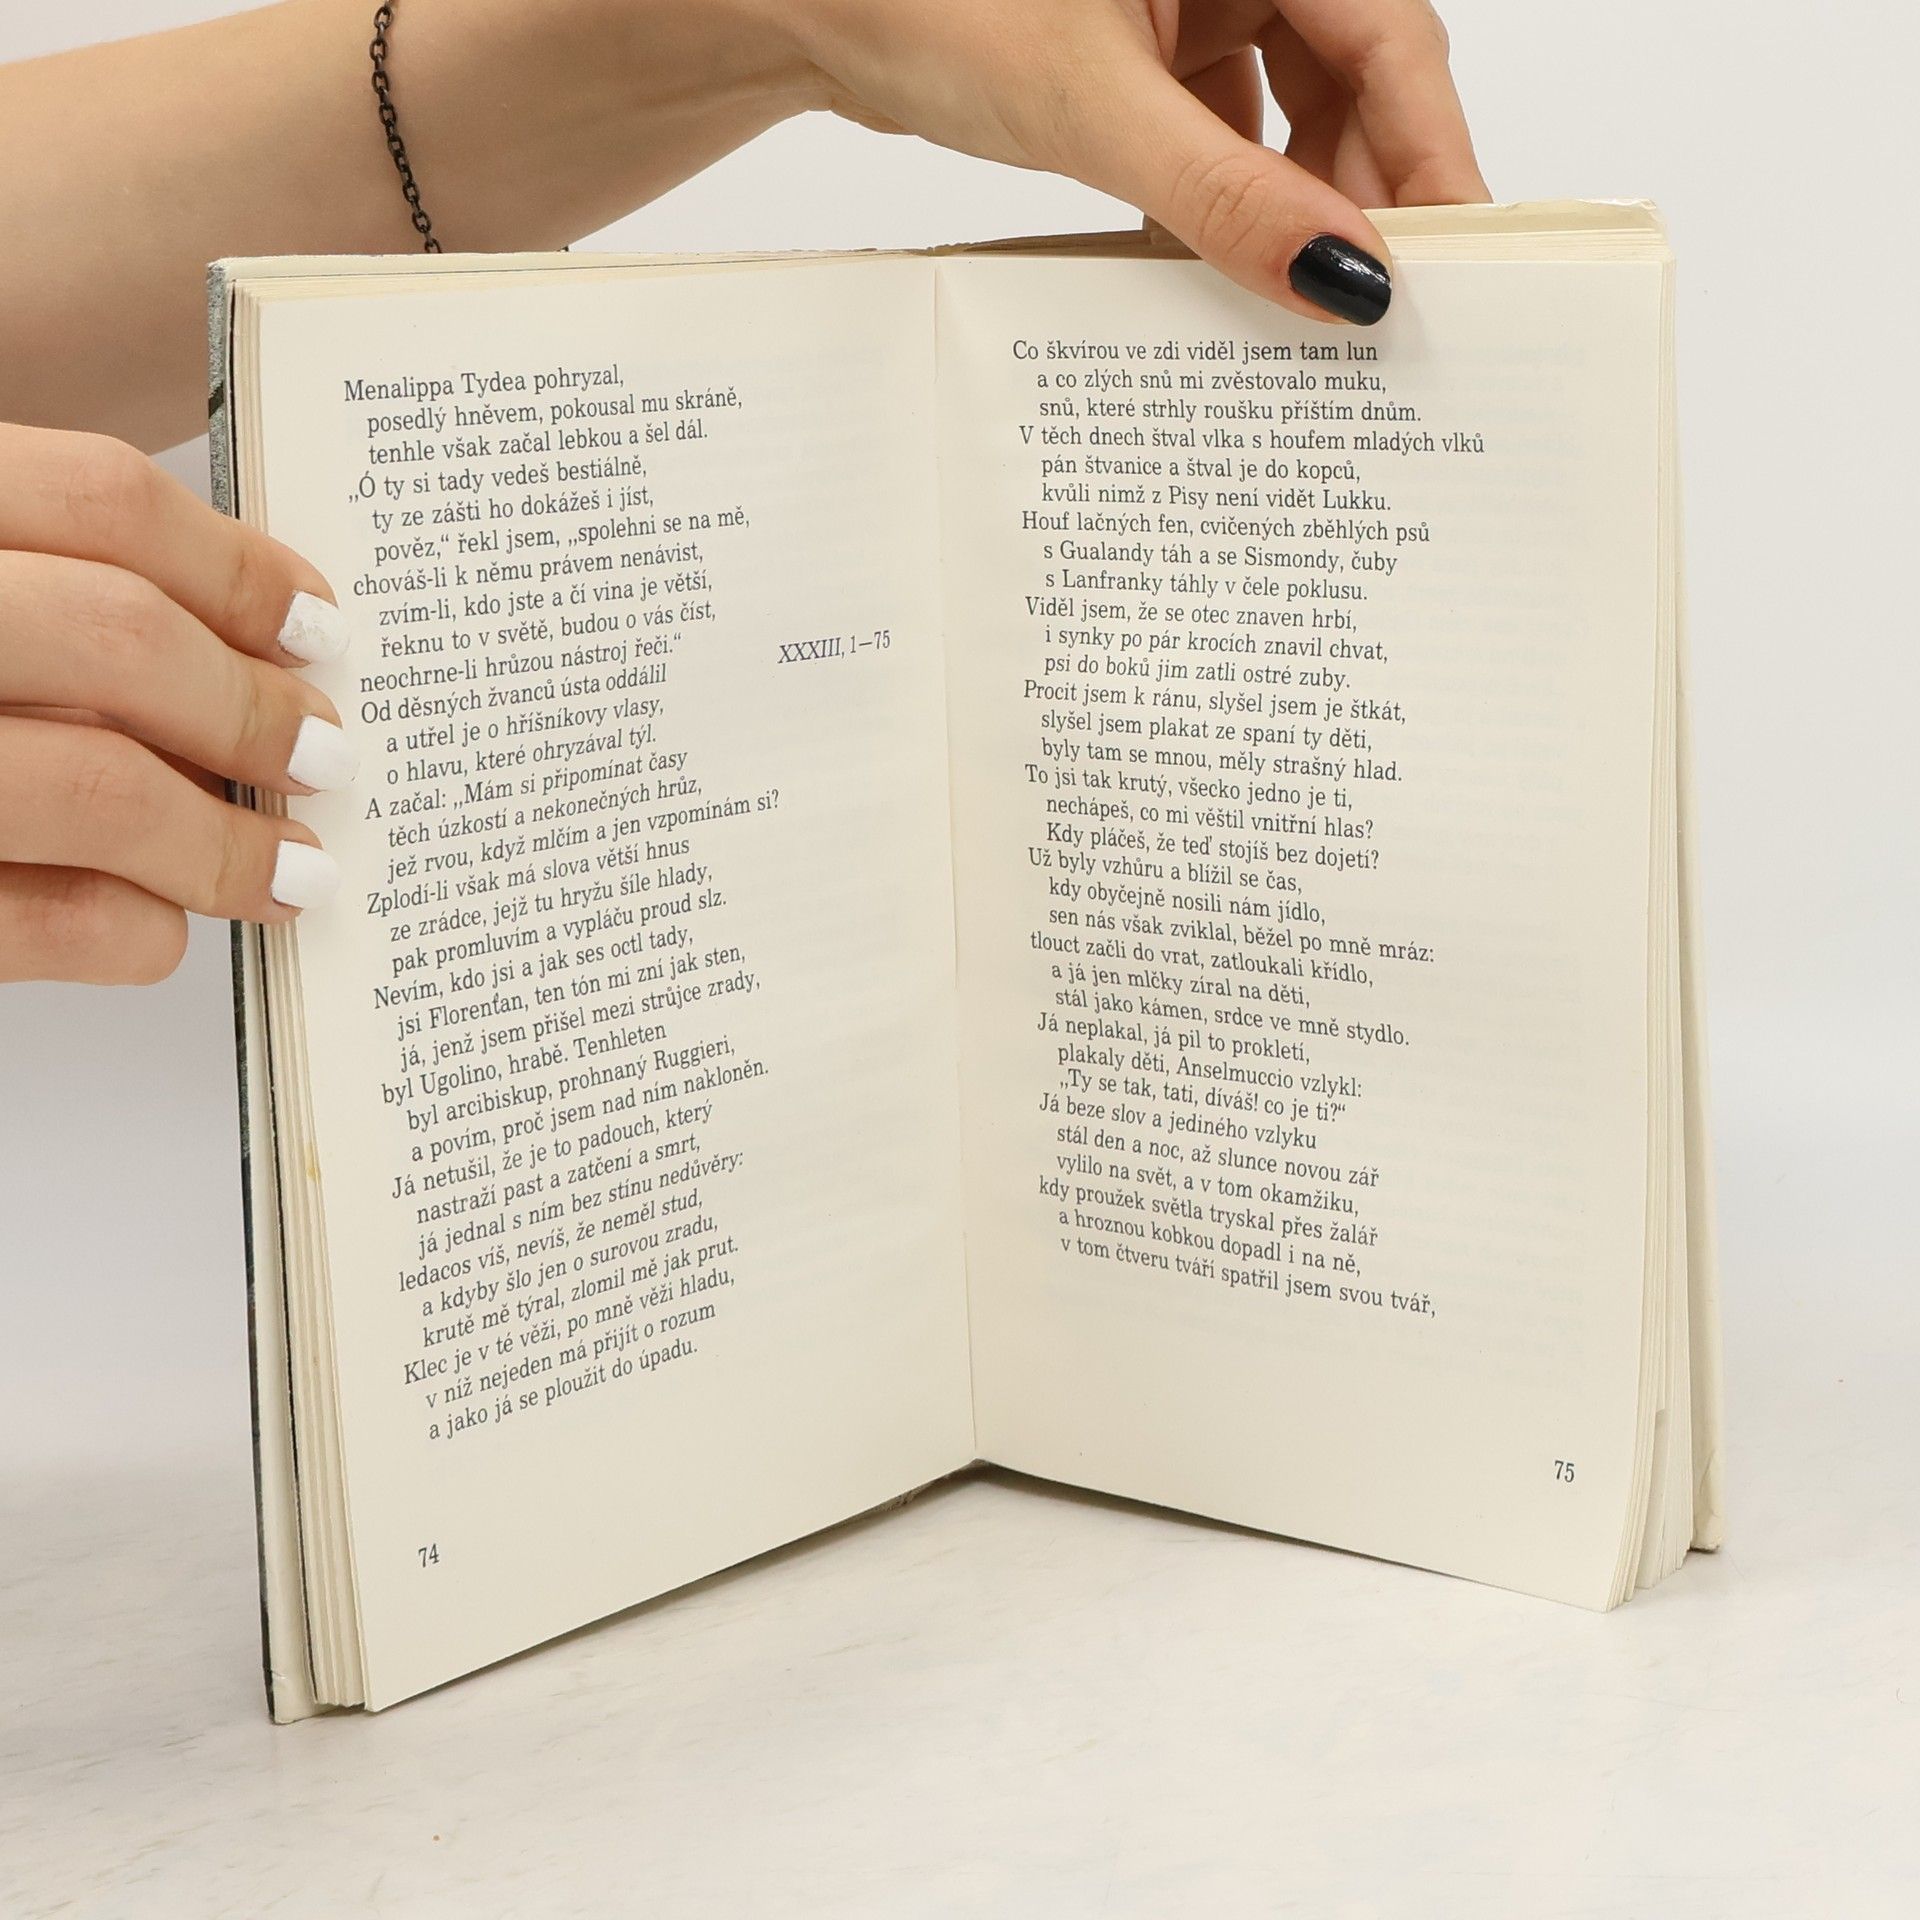 Menalippa Tydea pohryzal,
posedlý hněvem, pokousal mu skráně,
tenhle však začal lebkou a šel dál.
„Ó ty si tady vedeš bestiálně,
ty ze zášti ho dokážeš i jíst,
pověz,“ řekl jsem, „spolehni se na mě,
chováš-li k němu právem nenávist,
zvím-li, kdo jste a čí vina je větší,
řeknu to v světě, budou o vás číst,
neochrne-li hrůzou nástroj řeči.“
XXXIII, 1—75
Od děsných žvanců ústa oddálil
a utřel je o hříšníkovy vlasy,
o hlavu, které ohryzával týl.
A začal: „Mám si připomínat časy
těch úzkostí a nekonečných hrůz,
jež rvou, když mlčím a jen vzpomínám si?
Zplodí-li však má slova větší hnus
ze zrádce, jejž tu hryžu šíle hlady,
pak promluvím a vypláču proud slz.
Nevím, kdo jsi a jak ses octl tady,
jsi Florenťan, ten tón mi zní jak sten,
já, jenž jsem přišel mezi strůjce zrady,
byl Ugolino, hrabě. Tenhleten
byl arcibiskup, prohnaný Ruggieri,
a povím, proč jsem nad ním nakloněn.
Já netušil, že je to padouch, který
nastraží past a zatčení a smrt,
já jednal s ním bez stínu nedůvěry:
ledacos víš, nevíš, že neměl stud,
a kdyby šlo jen o surovou zradu,
krutě mě týral, zlomil mě jak prut.
Klec je v té věži, po mně věži hladu,
v níž nejeden má přijít o rozum
a jako já se ploužit do úpadu.
74
Co škvírou ve zdi viděl jsem tam lun
a co zlých snů mi zvěstovalo muku,
snů, které strhly roušku příštím dnům.
V těch dnech štval vlka s houfem mladých vlků
pán štvanice a štval je do kopců,
kvůli nimž z Pisy není vidět Lukku.
Houf lačných fen, cvičených zběhlých psů
s Gualandy táh a se Sismondy, čuby
s Lanfranky táhly v čele poklusu.
Viděl jsem, že se otec znaven hrbí,
i synky po pár krocích znavil chvat,
psi do boků jim zatli ostré zuby.
Procit jsem k ránu, slyšel jsem je štkát,
slyšel jsem plakat ze spaní ty děti,
byly tam se mnou, měly strašný hlad.
To jsi tak krutý, všecko jedno je ti,
nechápeš, co mi věštil vnitřní hlas?
Kdy pláčeš, že teď stojíš bez dojetí?
Už byly vzhůru a blížil se čas,
kdy obyčejně nosili nám jídlo,
sen nás však zviklal, běžel po mně mráz:
tlouct začli do vrat, zatloukali křídlo,
a já jen mlčky zíral na děti,
stál jako kámen, srdce ve mně stydlo.
Já neplakal, já pil to prokletí,
plakaly děti, Anselmuccio vzlykl:
„Ty se tak, tati, díváš! co je ti?“
Já beze slov a jediného vzlyku
stál den a noc, až slunce novou zář
vylilo na svět, a v tom okamžiku,
kdy proužek světla tryskal přes žalář
a hroznou kobkou dopadl i na ně,
v tom čtveru tváří spatřil jsem svou tvář,
75